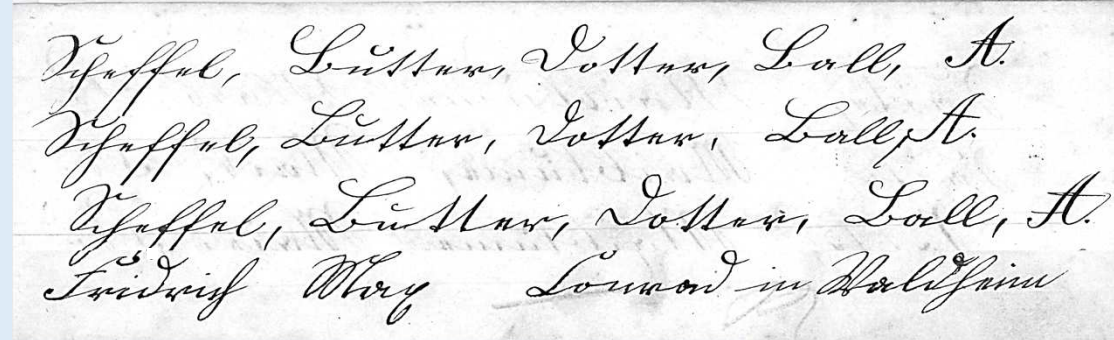 Scheffel, Butter, Dotter, Ball, A.
Scheffel, Butter, Dotter, Ball, A.
Scheffel, Butter, Dotter, Ball, A.
Fridrich Max Conrad in Waldheim